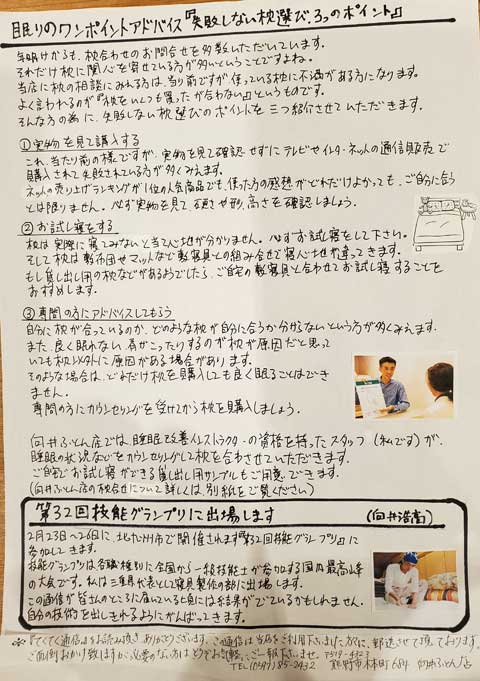 眠りのワンポイントアドバイス『失敗しない枕選び、3つのポイント』
年明けからも、枕合わせのお問合せを多数いただいています。
それだけ枕に関心を寄せている方が多いということですよね。
当店に枕の相談にみえる方は、当り前ですが使っている枕に不満がある方になります。
よく言われるのが『枕をいくつも買ったが合わない。』というものです。
そんな方の為に、失敗しない枕選びのポイントを三つ紹介させていただきます。
①実物を見て購入する
これ、当たり前の様ですが、実物を見て確認せずにテレビやインターネットの通信販売で
購入されて失敗されている方が多くみえます。
ネットの売り上げランキングが1位の人気商品でも、使った方の感想がどれだけよかっても、ご自分に合う
とは限りません。必ず実物を見て、硬さや形、高さを確認しましょう。
②お試し寝をする
枕は実際に寝てみないと当て心地が分かりません。必ずお試し寝をして下さい。
そして枕は敷布団やマットなど敷寝具との組み合せで寝心地が変ってきます。
もし貸し出し用の枕などがあるようでしたら、ご自宅の敷寝具と合わせてお試し寝することを
おすすめします。
③専門の方にアドバイスしてもらう
自分に枕が合っているのか、どのような枕が自分に合うか分からないという方が多くみえます。
また、良く眠れない、肩がこったりするのが枕が原因だと思って
いても枕以外に原因がある場合があります。
そのような場合は、どれだけ枕を購入しても良く眠ることはでき
ません。
専門の方にカウンセリングを受けてから枕を購入しましょう。
向井ふとん店では、睡眠改善インストラクターの資格を持ったスタッフ(私です)が、
睡眠の状況などをカウンセリングして枕を合わせさせていただきます。
ご自宅でお試し寝ができる貸し出し用サンプルもご用意できます。
(向井ふとん店の枕合せについて詳しくは、別紙をご覧ください)
第32回技能グランプリに出場します (向井浩高)
2月23日〜26日に、北九州市で開催されます『第32回技能グランプリ』に
参加してきます。
技能グランプリは各職種別に全国から一級技能士が参加する国内最高峰
の大会です。私は三重県代表として寝具製作の部に出場します。
この通信が皆さんのところに届いている頃には結果がでているかもしれません。
自分の技術を出しきれるようにがんばってきます。
※『てくてく通信』をお読み頂きありがとうございます。この通信は当店をご利用下さいました方に、郵送させて頂いております。
ご面倒おかけ致しますが、必要のない方はどうぞお気軽にご一報下さいませ。〒519-4323
TEL(0597)85-2432 熊野市木本町684 向井ふとん店